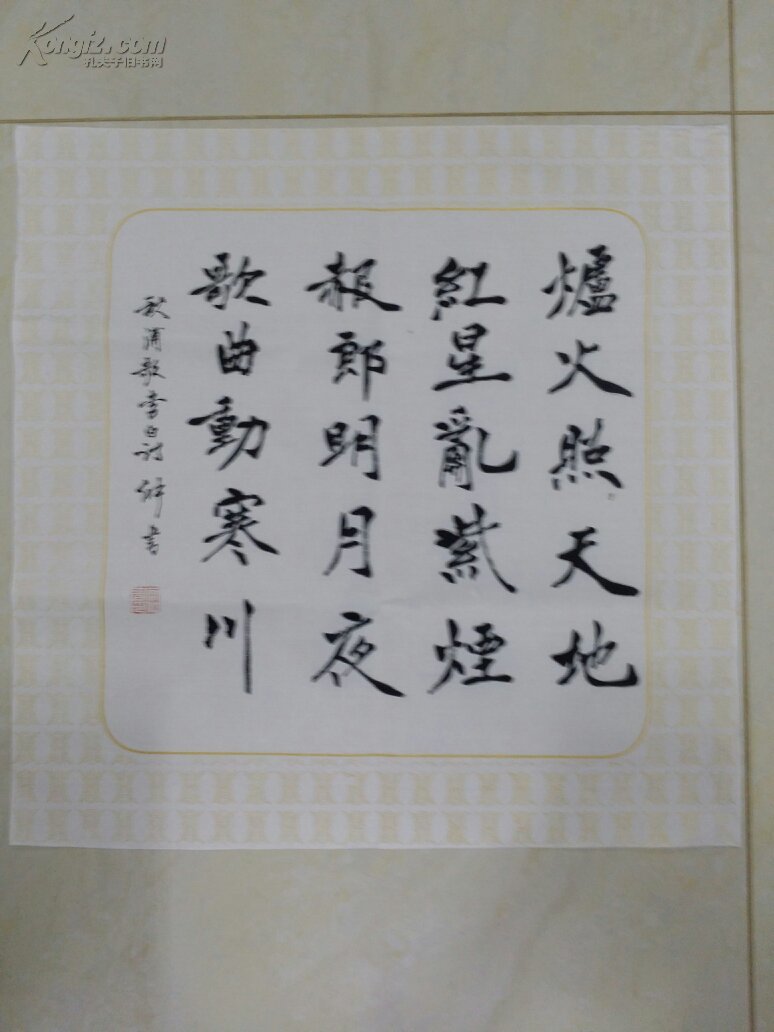 爐火照天地
紅星亂紫煙
赧郎明月夜
歌曲動寒川
秋浦歌李白詩 書
Kongfz.com
孔夫子旧书网